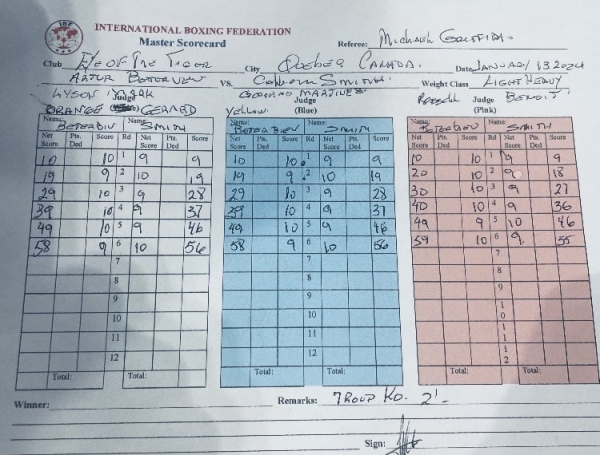 IBF
INTERNATIONAL BOXING FEDERATION
Master Scorecard
Referee: Michael Griffin
Club EYE OF THE TIGER City Quebec CANADA. Date JANUARY 13 2024
ARTUR BETERVIEV VS. SMITH Weight Class LIGHT HEAVY
Judge
ORANGE GERARD
Judge
Yellow. (Blue)
Judge BENOIT
(Pink)
Name: BETERBIEV Name: SMITH
Net Score Pts. Ded Score Rd Net Score Pts. Ded Score
10 10 1 9 9
19 9 2 10 19
29 10 3 9 28
39 10 4 9 37
49 10 5 9 46
58 9 6 10 56
7
8
9
10
11
12
Total: Total:
Name: BETERBIEV Name: SMITH
Net Score Pts. Ded Score Rd Net Score Pts. Ded Score
10 10 1 9 9
19 9 2 10 19
29 10 3 9 28
39 10 4 9 37
49 10 5 9 46
58 9 6 10 56
7
8
9
10
11
12
Total: Total:
Name: BETERBIEV Name: SMITH
Net Score Pts. Ded Score Rd Net Score Pts. Ded Score
10 10 1 9 9
20 10 2 9 18
30 10 3 9 27
40 10 4 9 36
49 9 5 10 46
59 10 6 9 55
7
8
9
1
0
1
1
1
2
Total: Total:
Winner: Remarks: KO. 2'-
Sign: